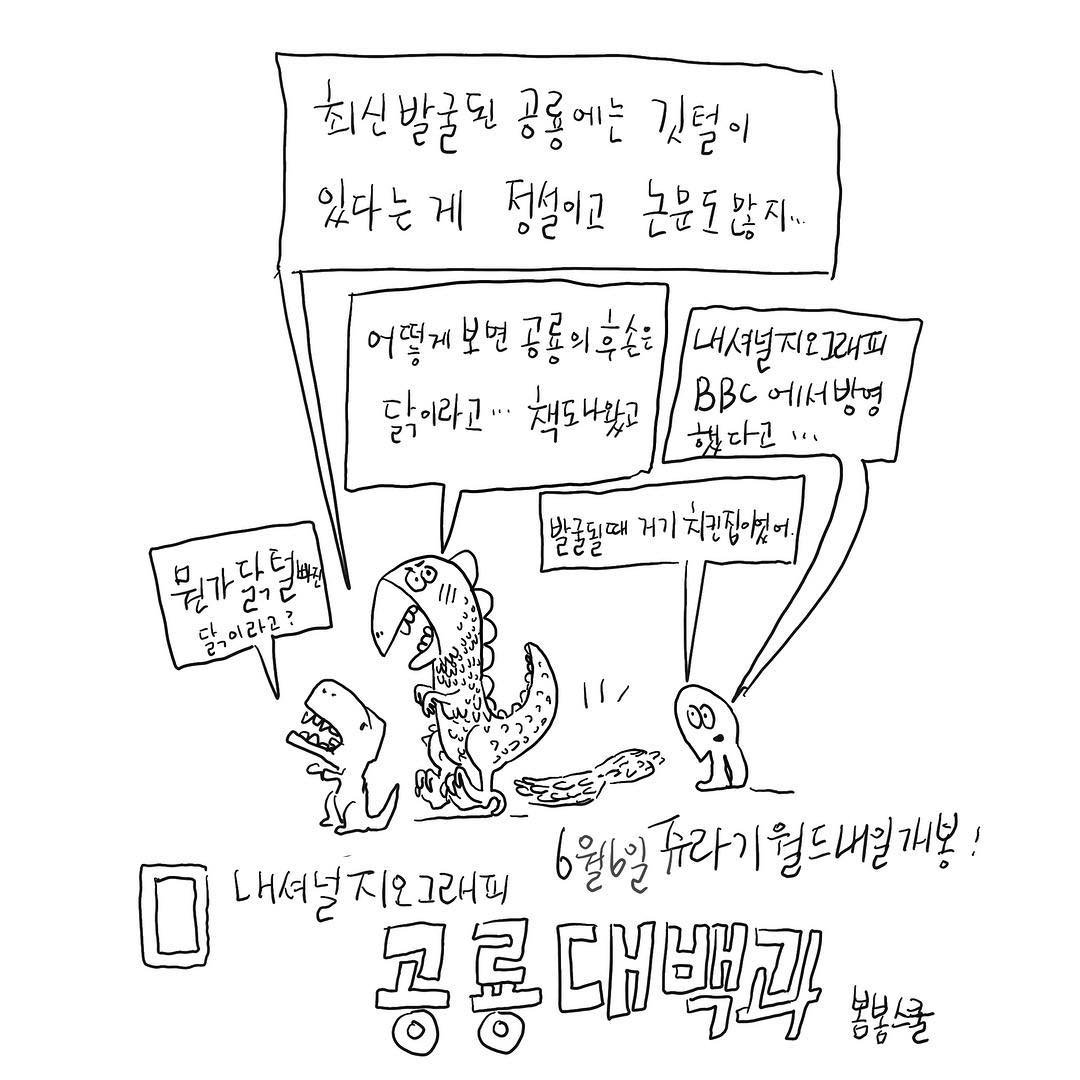 최신 발굴된 공룡에는 깃털이
있다는 게 정설이고 논문도 많지...
어떻게 보면 공룡의 후손은
닭이라고... 책도 나왔고
내셔널지오그래피
BBC 에서 방영
했다고 ...
발굴될때 거기 치킨집이었어.
뭔가 닭털 빠진
닭이라고?
6월6일 쥬라기 월드 내일 개봉!
내셔널 지오그래피
공룡대백과
봄봄스쿨